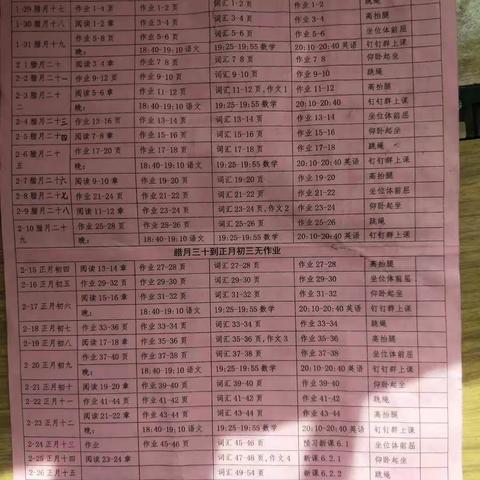 1-29腊月十七 作业1-4页 作业1-2页 词汇1-2页 作业1-2 跳绳
1-30腊月十八 阅读1-2章 作业3-4页 词汇3-4页 作业3-4 高抬腿
1-31腊月十九 作业5-8页 作业5-6页 词汇5-6页 作业5-6 坐位体前屈
晚: 18:40-19:10语文 19:25-19:55数学 20:10-20:40英语 钉钉群上课
2-1腊月二十 阅读3-4章 作业7-8页 词汇7-8页 作业7-8 仰卧起坐
2-2腊月二十一 作业9-12页 作业9-10页 词汇9-10页 作业9-10 跳绳
2-3腊月二十二 阅读5-6章 作业11-12页 词汇11-12页,作文1 作业11-12 高抬腿
晚: 18:40-19:10语文 19:25-19:55数学 20:10-20:40英语 钉钉群上课
2-4腊月二十三 作业13-16页 作业13-14页 词汇13-14页 作业13-14 坐位体前屈
2-5腊月二十四 阅读7-8章 作业15-16页 词汇15-16页 作业15-16 仰卧起坐
2-6腊月二十五 作业17-20页 作业17-18页 词汇17-18页 作业17-18 跳绳
晚: 18:40-19:10语文 19:25-19:55数学 20:10-20:40英语 钉钉群上课
2-7腊月二十六 阅读9-10章 作业19-20页 词汇19-20页 作业19-20 高抬腿
2-8腊月二十七 作业21-24页 作业21-22页 词汇21-22页 作业21-22 坐位体前屈
2-9腊月二十八 阅读11-12章 作业23-24页 词汇23-24页,作文2 作业23-24 仰卧起坐
2-10腊月二十九 作业25-28页 作业25-26页 词汇25-26页 作业25-26 跳绳
晚: 18:40-19:10语文 19:25-19:55数学 20:10-20:40英语 钉钉群上课
腊月三十到正月初三无作业
2-15正月初四 阅读13-14章 作业27-28页 词汇27-28页 作业27-28 高抬腿
2-16正月初五 作业29-32页 作业29-30页 词汇29-30页 作业29-30 坐位体前屈
2-17正月初六 阅读15-16章 作业31-32页 词汇31-32页 作业31-32 仰卧起坐
晚: 18:40-19:10语文 19:25-19:55数学 20:10-20:40英语 钉钉群上课
2-18正月初七 作业33-36页 作业33-34页 词汇33-34页 作业33-34 跳绳
2-19正月初八 阅读17-18章 作业35-36页 词汇35-36页,作文3 作业35-36 高抬腿
2-20正月初九 作业37-40页 作业37-38页 词汇37-38页 作业37-38 坐位体前屈
晚: 18:40-19:10语文 19:25-19:55数学 20:10-20:40英语 钉钉群上课
2-21正月初十 阅读19-20章 作业39-40页 词汇39-40页 作业39-40 仰卧起坐
2-22正月十一 作业41-44页 作业41-42页 词汇41-42页 作业41-42 跳绳
2-23正月十二 阅读21-22章 作业43-44页 词汇43-44页 作业43-44 高抬腿
晚: 18:40-19:10语文 19:25-19:55数学 20:10-20:40英语 钉钉群上课
2-24正月十三 作业 作业45-46页 词汇45-46页 预习新课6.1 坐位体前屈
2-25正月十四 阅读23-24章 词汇47-48页,作文4 新课6.2.1 仰卧起坐
2-26正月十五 词汇49-54页 新课6.2.2 跳绳